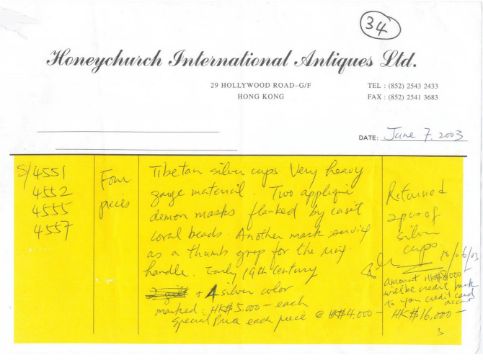 34
Honeychurch International Antiques Ltd.
29 HOLLYWOOD ROAD-G/F
HONG KONG
TEL : (852) 2543 2433
FAX : (852) 2541 3683
DATE: June 7, 2003
S/4551
4552
4555
4557
Four
pieces
Tibetan silver cups Very heavy
gauge material. Two appliqué
demon masks flanked by
coral beads. Another mask serving
as a thumb grip for the ring
handle. Early 19th Century
4 silver color
marked: HK$5,000 - each
Special Price each piece @ HK$4,000 - HK$16,000 -
Returned
2 pcs of
silver
cups
10/06/03
amount HK$8,000
will be credit back
to your credit card